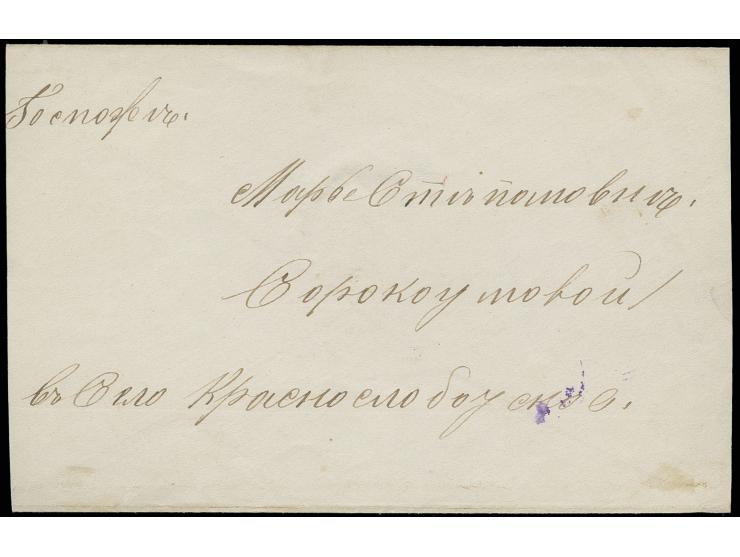 Госпожѣ
Марьѣ Стѣпановнѣ.
Сорокоумовой
въ Село Краснослободское.